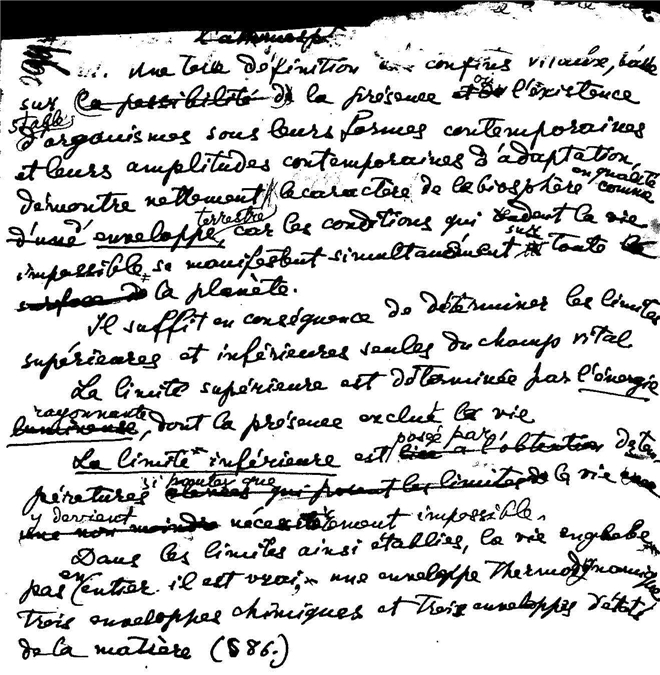 l'atmosph
une telle définition confins vitaux, basée
sur la possibilité de la présence et de ou l'existence
stables
d'organismes sous leurs formes contemporaines
et leurs amplitudes contemporaines d'adaptation,
en qualité
démontre nettement le caractère de la biosphère comme
terrestre
d'une enveloppe, car les conditions qui rendent la vie
sur
impossible se manifestent simultanément toute la
surface de la planète.
Il suffit en conséquence de déterminer les limites
supérieures et inférieures seules du champ vital
La limite supérieure est déterminée par l'énergie
rayonnante
lumineuse, dont la présence exclut la vie
posée par
La limite inférieure est liée à l'obtention de tem
si hautes que
pératures élevées qui posent les limites de la vie
y devient
une non moindre nécessairement impossible.
Dans les limites ainsi établies, la vie englobe,
en
pas entier il est vrai, une enveloppe thermodynamique
trois enveloppes chimiques et trois enveloppes d'états
de la matière (§ 86.)